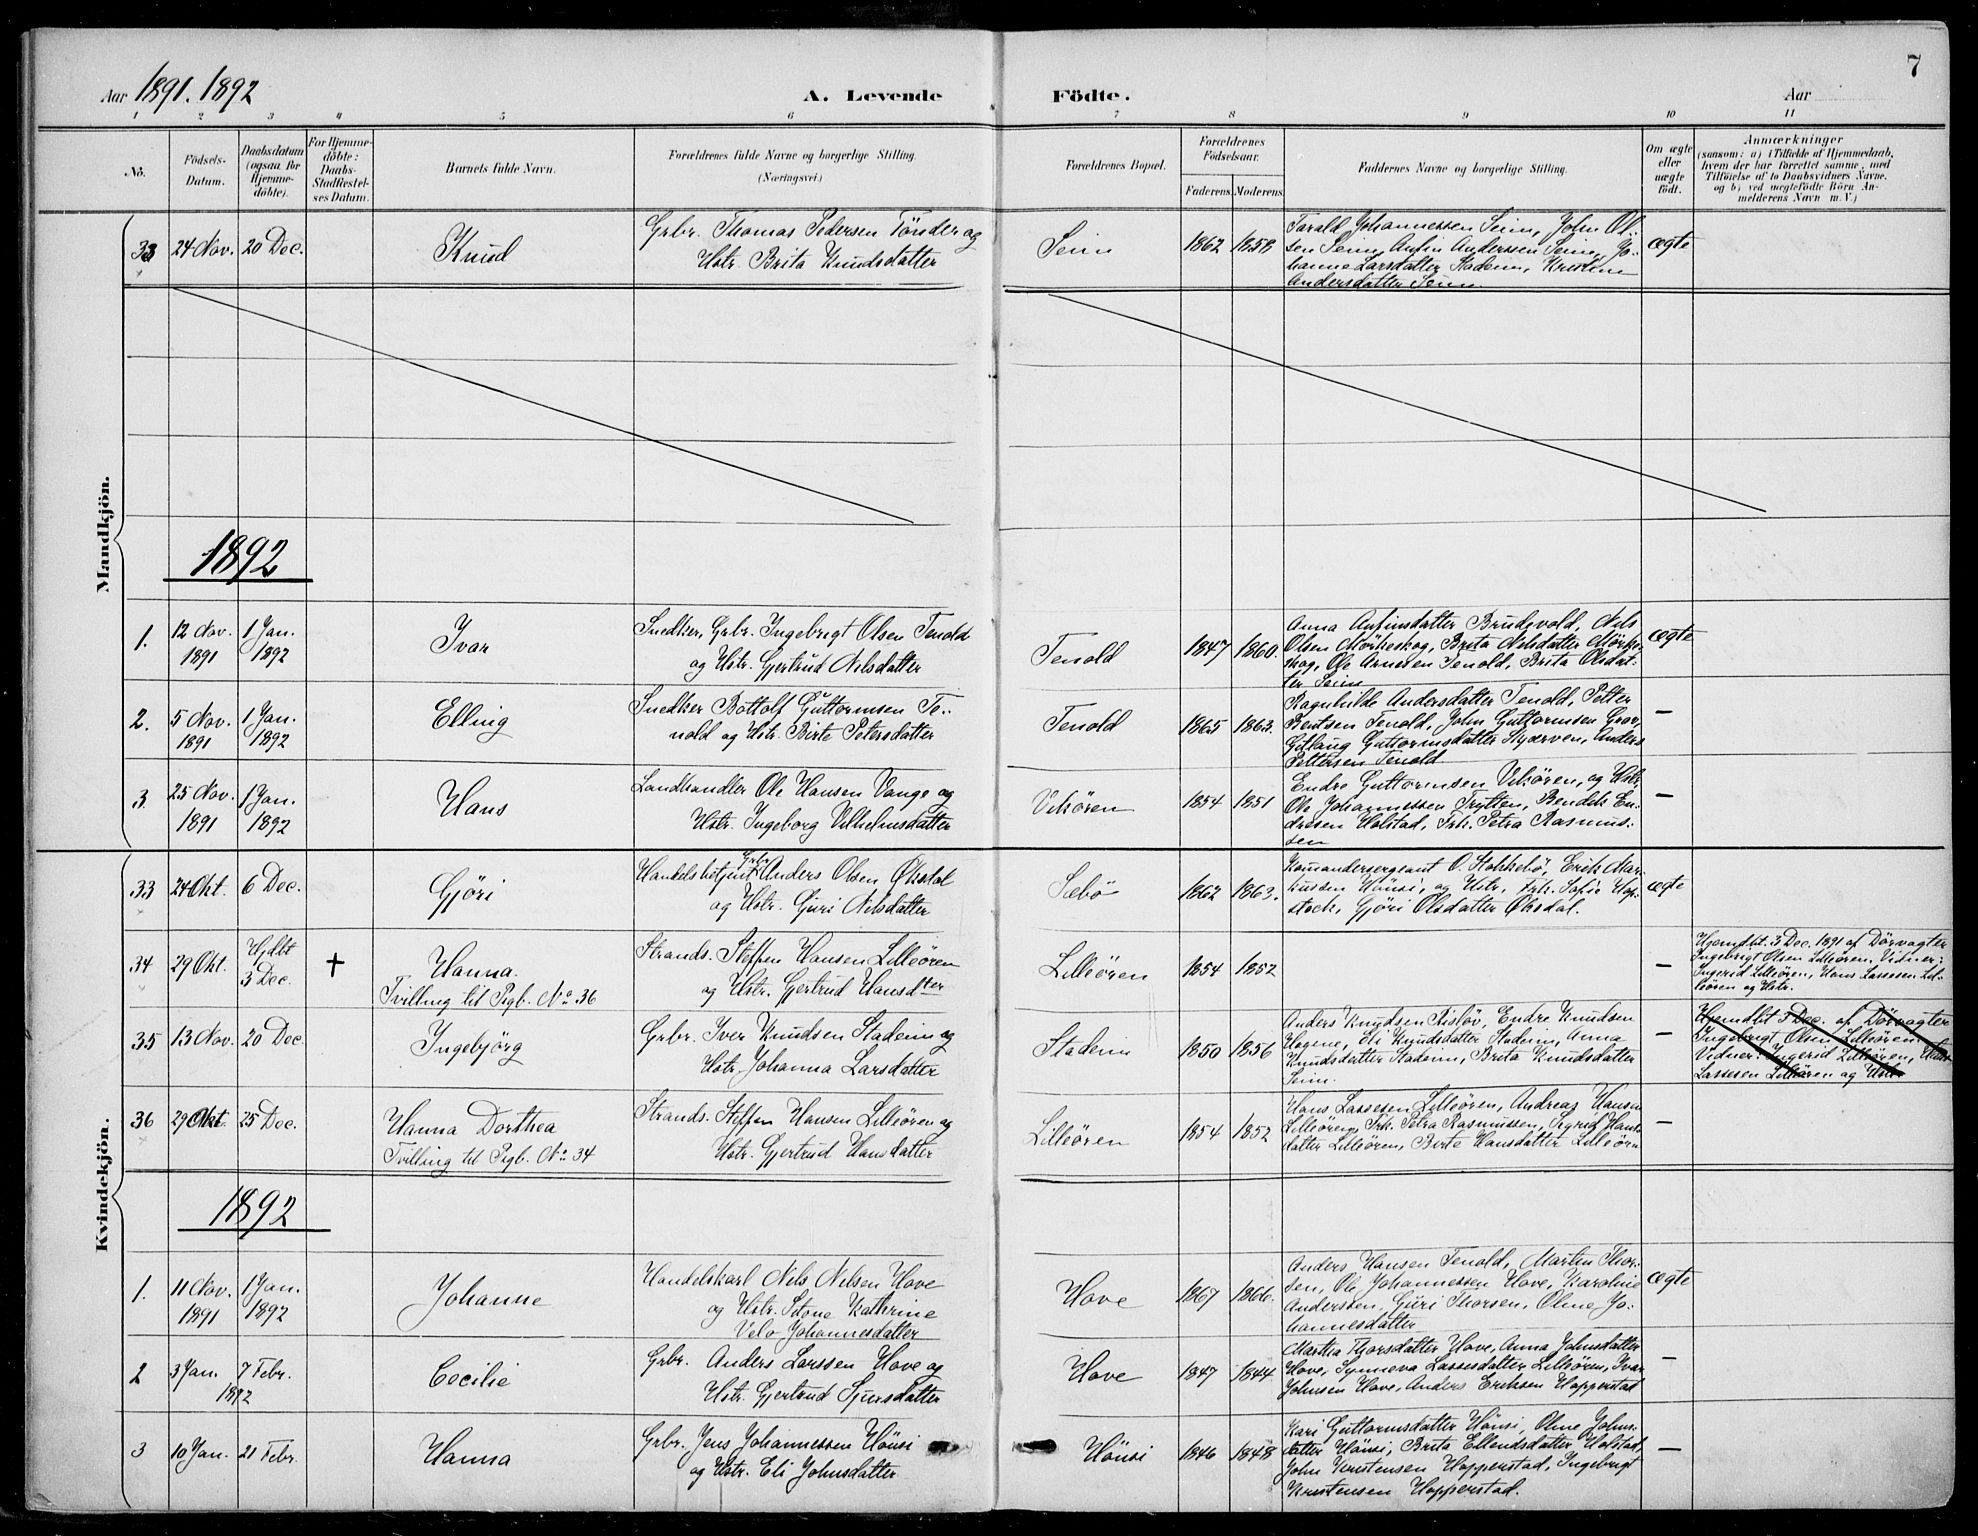 7
Aar 1891. 1892
A. Levende Födte.
Aar
1 2 3 4 5 6 7 8 9 10 11
No.
Födsels-
Datum.
Daabsdatum
(ogsaa for
Hjemme-
döbte).
For Hjemme-
döbte:
Daabs-
Stadfestel-
ses Datum.
Barnets fulde Navn.
Forældrenes fulde Navne og borgerlige Stilling.
(Næringsvei.)
Forældrenes Bopæl.
Forældrenes
Födselsaar.
Faderens. Moderens.
Faddernes Navne og borgerlige Stilling.
Om ægte
eller
uægte
født.
Anmærkninger
(saasom: a) i Tilfælde af Hjemmedaab,
hvem der har forrettet samme, med
Tilföielse af to Daabsvidners Navne,
og b) ved uægtefödte Börn An-
melderens Navn m. V.)
Mandkjön.
33 24 Nov. 20 Dec.
Knud
Grbr. Thomas Pedersen Tönder og
Hstr. Brita Knudsdatter
Seim
1862 1858
Tarald Johannessen Seim, John Ol-
sen Seim, Anfin Anderssen Seim, Jo-
hanne Larsdatter Stadeim, Kristine
Andersdatter Seim
ægte
1892
1.
12 Nov.
1891
1 Jan.
1892
Ivar
Snedker, Grbr. Ingebrigt Olsen Tenold
og Hstr. Gjertrud Nilsdatter
Tenold
1847 1860.
Anna Anfinsdatter Brudvold, Nils
Olsen Mörkeskog, Brita Nilsdatter Mörke-
skog, Ole Arnesen Tenold, Brita Olsdat-
ter Seim
ægte
2.
5 Nov.
1891
1 Jan.
1892
Elling
Snedker Bottolf Guttormsen Te-
nold og Hstr. Birte Petersdatter
Tenold
1865 1863.
Ragnhilde Andersdatter Tenold, Petter
Bentsen Tenold, John Guttormsen Grov,
Gitlaug Guttormsdatter, Anders
Pettersen Tenold
—
3
25 Nov.
1891
1 Jan.
1892
Hans
Landhandler Ole Hansen Vange og
Hstr. Ingeborg Vilhelmsdatter
Vikören
1854 1851
Endre Guttormsen Vikören, og Hstr.
Ole Johannessen Trytten, Bendik En-
dresen Holstad, Frk. Petra Rasmus-
sen
—
Kvindekjön.
33 24 Okt. 6 Dec.
Gjöri
Grbr.
Handelsbetjent Anders Olsen Öksdal
og Hstr. Guri Nilsdatter
Sæbö
1862 1863.
Komandersergeant O. Stokkebö, Erik Mar-
kussen Hönsi, og Hstr., Frk. Sofie Hop-
stock, Gjöri Olsdatter Öksdal.
ægte
34 29 Okt.
Hjdbt
3 Dec.
+
Hanna.
Tvilling til Pigb. No 36
Strands. Steffen Hansen Lilleören
og Hstr. Gjertrud Hansdter
Lilleören
1854 1852
—
Hjemdbt. 3 Dec. 1891 af Dörvagter
Ingebrigt Olsen Lilleören. Vidner:
Ingerid Lilleören, Hans Lassesen Lil-
leören og Hstr.
35 13 Nov. 20 Dec.
Ingebjörg
Grbr. Iver Knudsen Stadeim og
Hstr. Johanna Larsdatter
Stadeim
1850 1856
Anders Knudsen, Endre Knudsen
Hagene, Eli Knudsdatter Stadeim, Anna
Knudsdatter Stadeim, Brita Knudsdatter
Seim.
—
Hjemdbt 3 Dec. af Dörvagter
Ingebrigt Olsen Lilleören.
Vidner: Ingerid Lilleören, Hans
Lassesen Lilleören og Hstr.
36 29 Okt. 25 Dec.
Hanna Dorthea
Tvilling til Pigb. No 34
Strands. Steffen Hansen Lilleören og
Hstr. Gjertrud Hansdatter
Lilleören
1854 1852
Hans Lassesen Lilleören, Andreas Hansen
Lilleören, Frk. Petra Rasmussen, Sigrid Hans-
datter Lilleören, Birte Hansdatter Lilleören
—
1892
1.
11 Nov.
1891
1 Jan.
1892
Johanne
Handelskarl Nils Nilsen Hove
og Hstr. Kathrine
Velo Johannesdatter
Hove
1867 1866.
Anders Hansen Tenold, Martin Thor-
sen, Ole Johannessen Hove, Karoline
Anderssen, Guri Thorsen, Oline Jo-
hannesdatter
ægte
2
3 Jan. 7 Febr.
1892
Cecilie
Grbr. Anders Larssen Hove og
Hstr. Gjertrud Sjursdatter
Hove
1847 1844
Martha Thorsdatter Hove, Anna Johnsdatter
Hove, Synneva Lassesdatter Lilleören, Ivar
Johnsen Hove, Anders Eriksen Hopperstad
—
3 10 Jan. 21 Febr.
Hanna
Grbr. Jens Johannessen Hönsi
og Hstr. Eli Johnsdatter
Hönsi
1846 1848
Kari Guttormsdatter Hönsi, Oline Johns-
datter Hönsi, Brita Ellendsdatter Holstad,
John Kristensen Hopperstad, Ingebrigt
Kristensen Hopperstad.
—